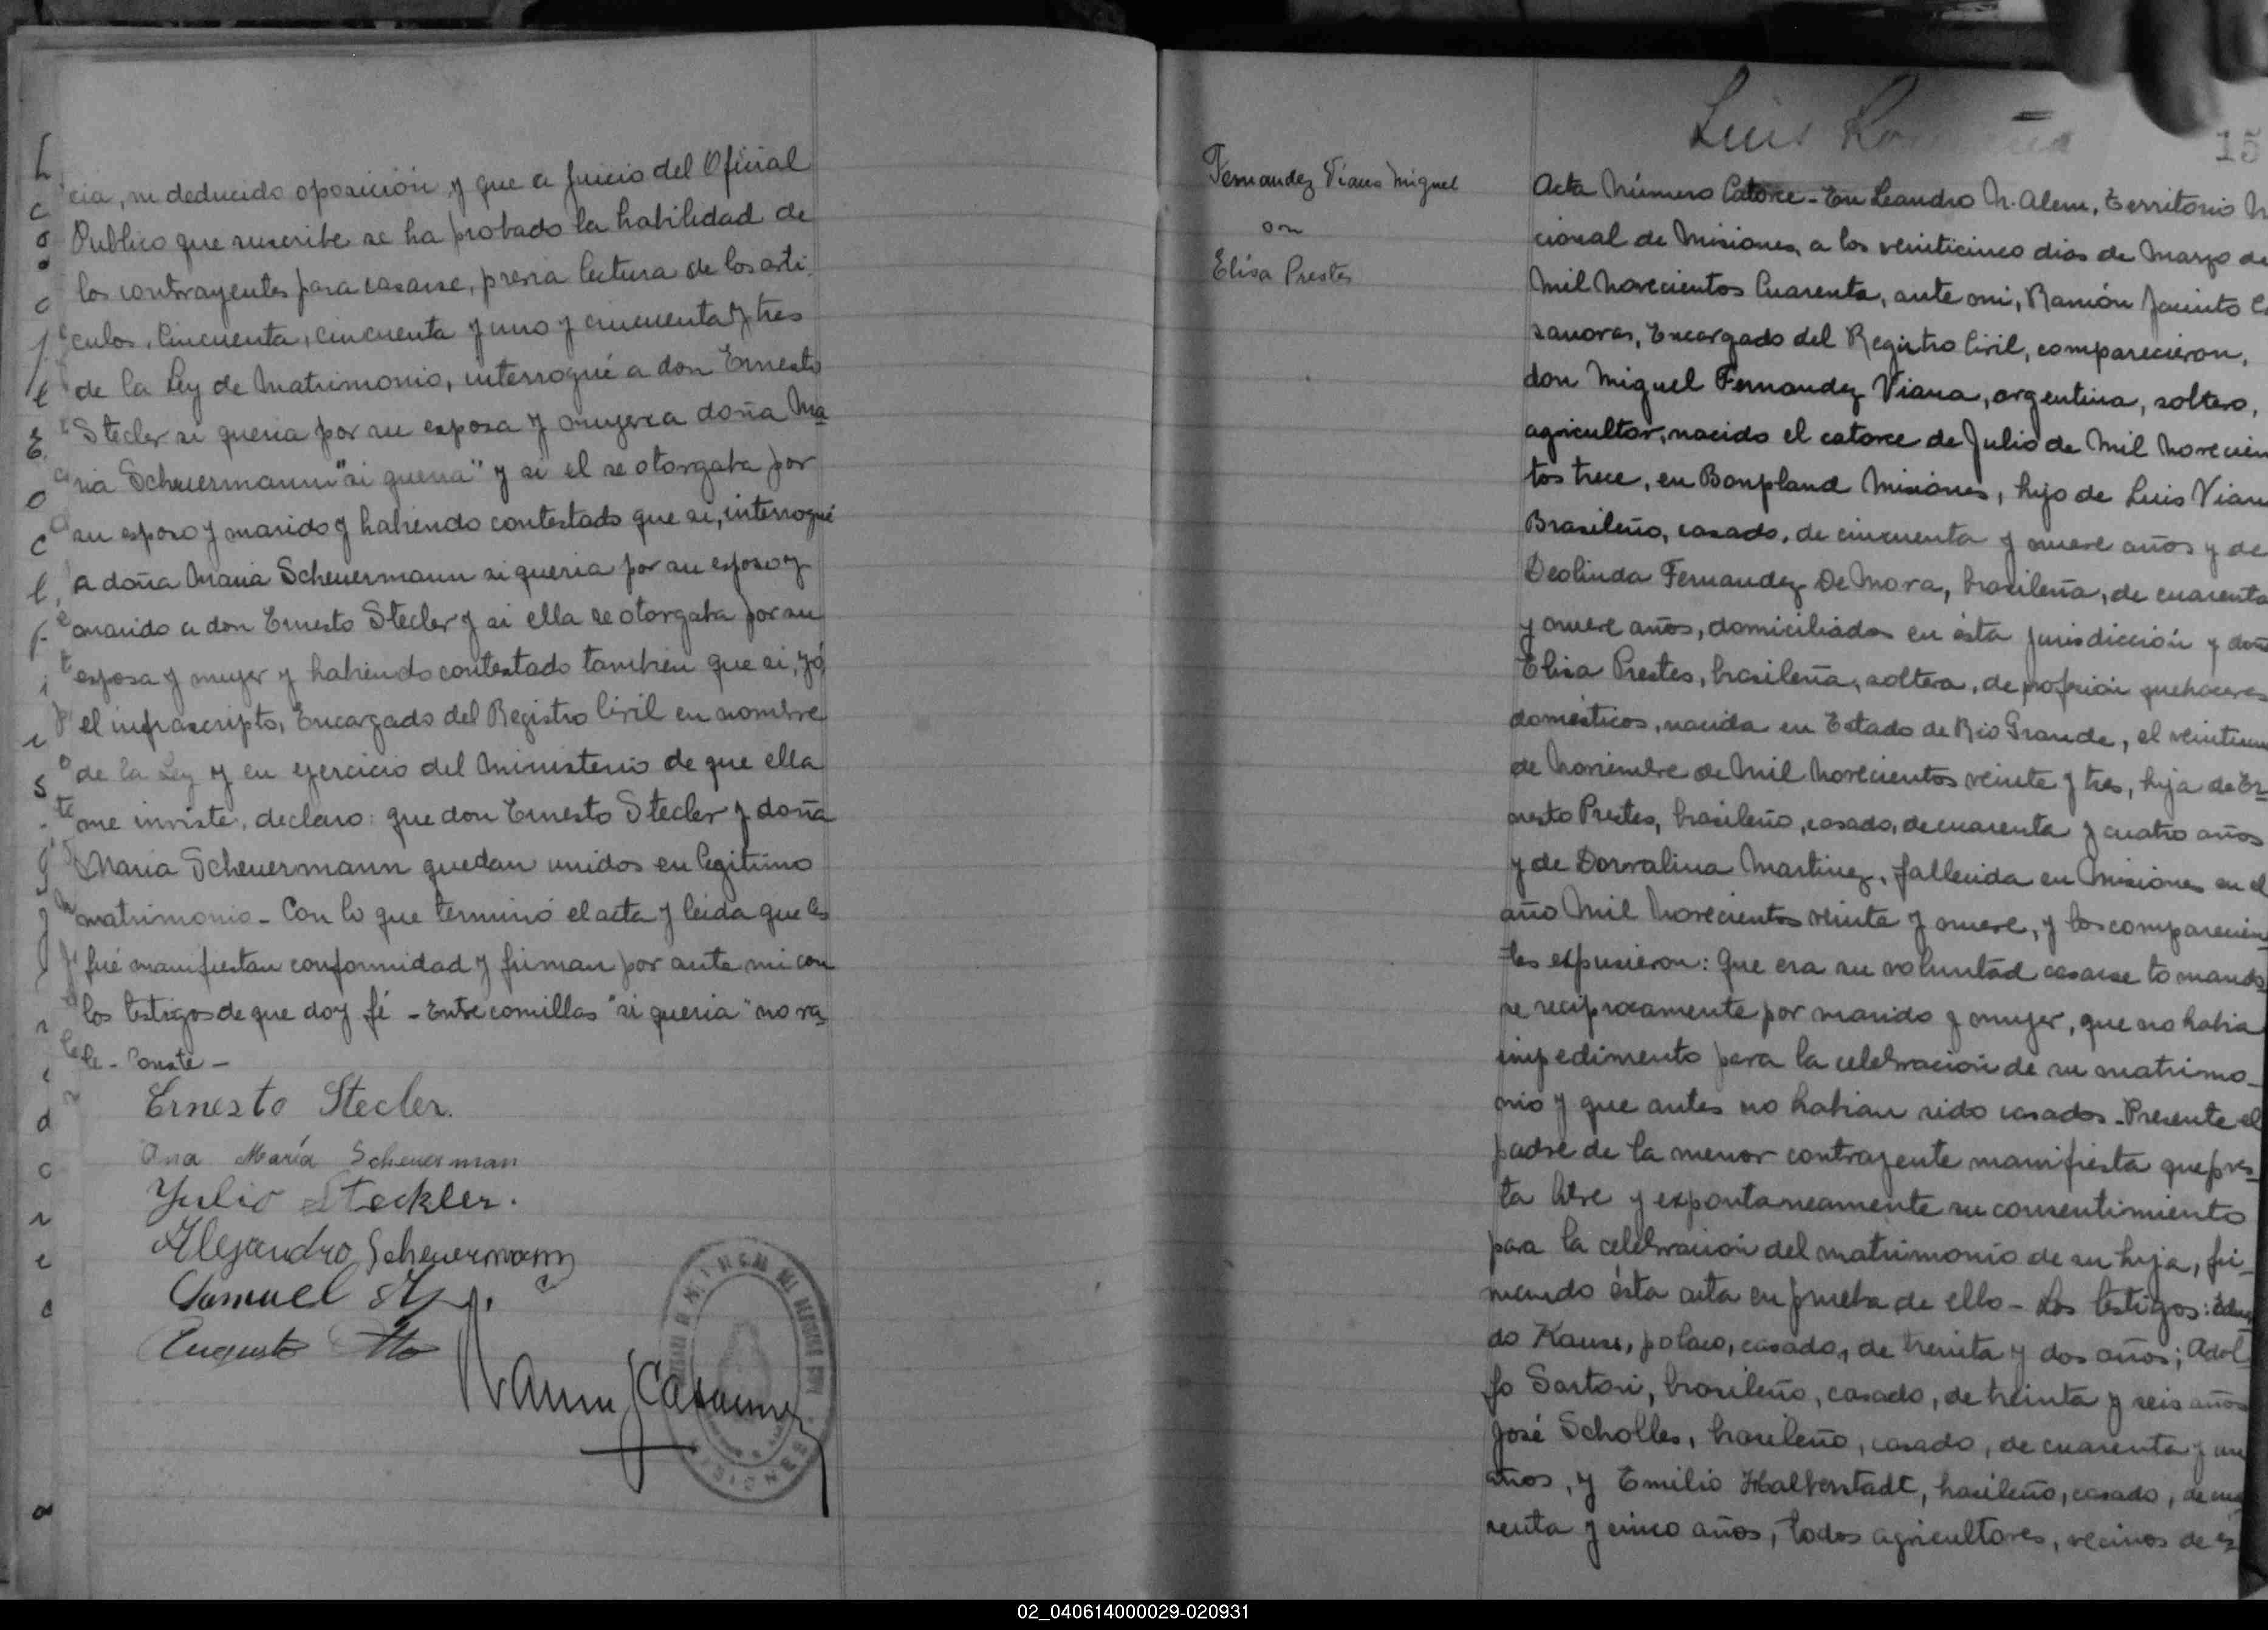 cia, ni deducido oposición y que a juicio del Oficial
Publico que suscribe se ha probado la habilidad de
los contrayentes para casarse, previa lectura de los arti
culos, Cincuenta, cincuenta y uno y cincuenta y tres
de la Ley de Matrimonio, interrogué a don Ernesto
Stecler si queria por su esposa y mujer a doña Ma
ria Scheuermann "si queria" y si el se otorgaba por
su esposo y marido y habiendo contestado que si, interrogué
a doña Maria Scheuermann si queria por su esposo y
marido a don Ernesto Stecler y si ella se otorgaba por su
esposa y mujer y habiendo contestado tambien que si, yó
el infrascripto, Encargado del Registro Civil en nombre
de la Ley y en ejercicio del Ministerio de que ella
me inviste, declaro: que don Ernesto Stecler y doña
Maria Scheuermann quedan unidos en legitimo
matrimonio - Con lo que terminó el acta y leida que les
fué manifiestan conformidad y firman por ante mi con
los testigos de que doy fé - Entre comillas "si queria" no va
le - Conste -
Ernesto Stecler.
Ana María Scheuerman
Julio Steckler.
Alejandro Scheuermann
Samuel
Augusto Otto
Ramon J Casanovas
MISIONES
Luis
15
Fernandez Viana Miguel
on
Elisa Prestes
Acta Número Catorce - En Leandro N. Alem, Territorio N
cional de Misiones, a los veinticinco dias de Marzo de
Mil Novecientos Cuarenta, ante mi, Ramón Jacinto C
sanovas, Encargado del Registro Civil, comparecieron,
don Miguel Fernandez Viana, argentino, soltero,
agricultor, nacido el catorce de Julio de Mil Novecien
tos trece, en Bonpland Misiones, hijo de Luis Vian
Brasileño, casado, de cincuenta y nueve años y de
Deolinda Fernandez De Mora, brasileña, de cuarenta
y nueve años, domiciliados en ésta jurisdicción y doñ
Elisa Prestes, brasileña, soltera, de profesión quehaceres
domésticos, nacida en Estado de Rio Grande, el veintiun
de Noviembre de Mil Novecientos veinte y tres, hija de Er
nesto Prestes, brasileño, casado, de cuarenta y cuatro años
y de Dorvalina Martinez, fallecida en Misiones en el
año Mil Novecientos veinte y nueve, y los comparecien
tes expusieron: Que era su voluntad casarse tomando
se reciprocamente por marido y mujer, que no habia
impedimento para la celebración de su matrimo-
nio y que antes no habian sido casados - Presente el
padre de la menor contrayente manifiesta que pres
ta libre y expontaneamente su consentimiento
para la celebración del matrimonio de su hija, fir
mando ésta acta en prueba de ello - Los testigos: Edu
do Kauss, polaco, casado, de treinta y dos años; Adol
fo Sartori, brasileño, casado, de treinta y seis años
José Scholles, brasileño, casado, de cuarenta y un
años, y Emilio Halberstadt, brasileño, casado, de cua
renta y cinco años, todos agricultores, vecinos de es
02_040614000029-020931